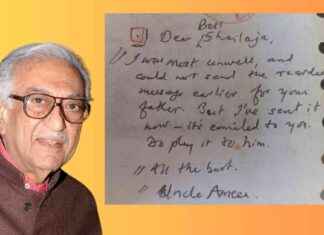 Dear Shailaja,
I was most unwell, and
could not send the recorded
message earlier for your
father. But I've sent it
now – it's emailed to you.
Do play it to him.
All the best.
Uncle Ameen